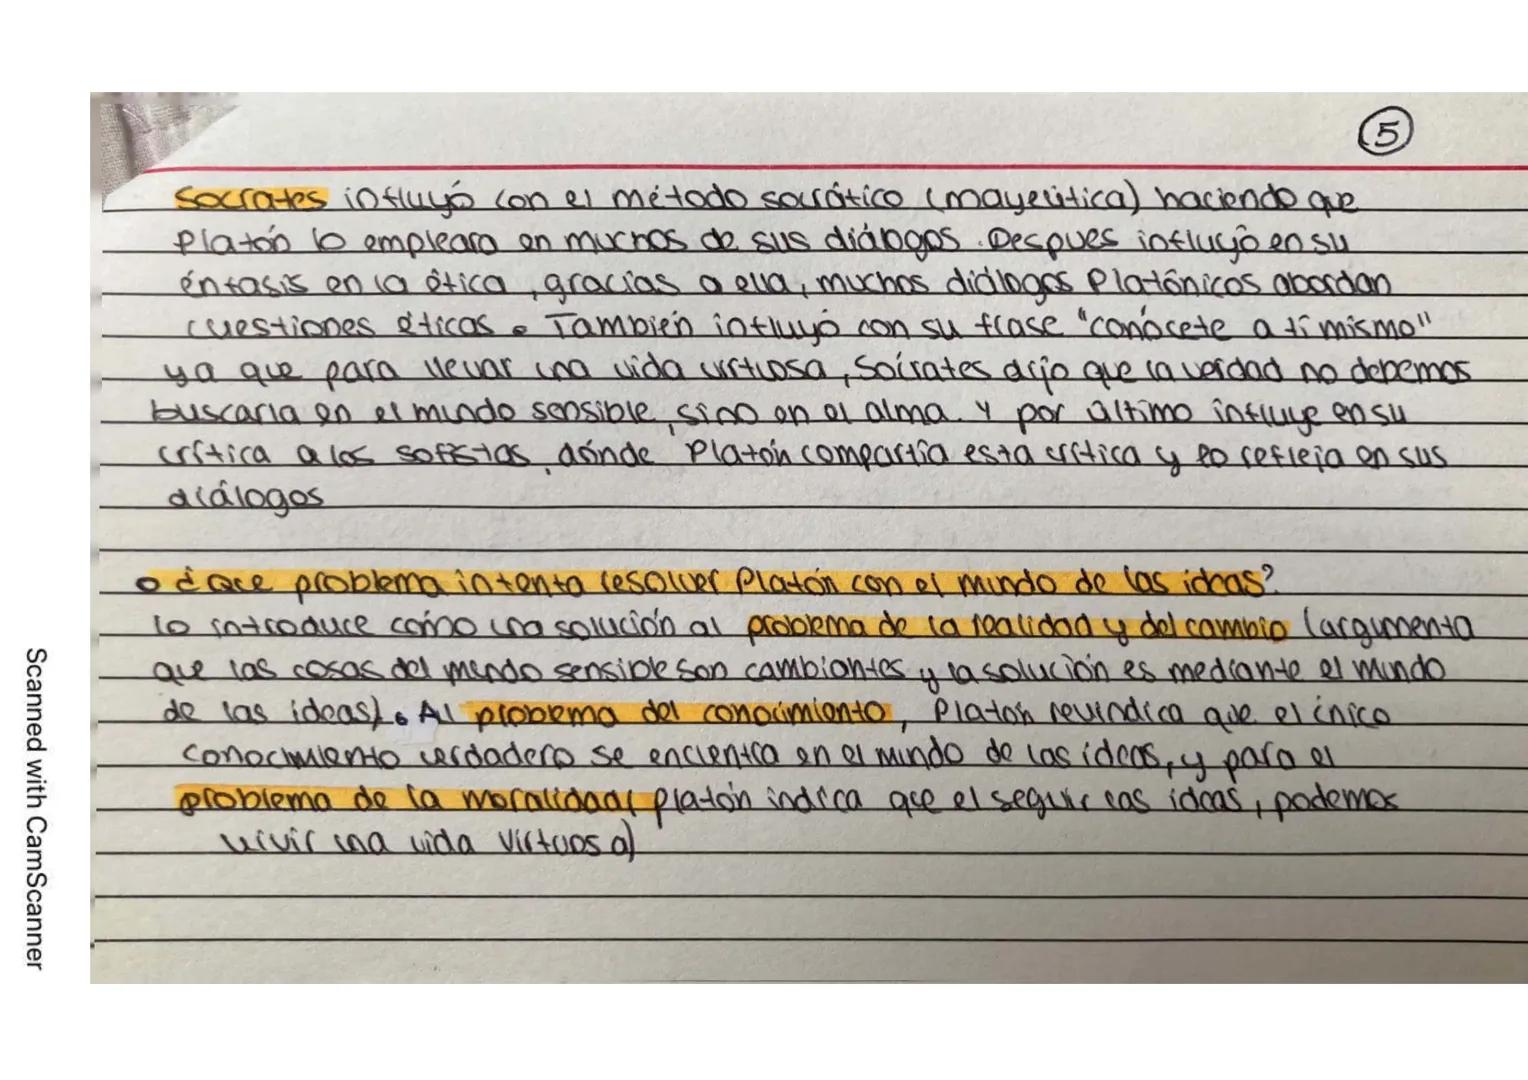 5
Socrates influyó con el método socrático (mayeútica) haciendo que
Platón lo empleara en muchos de sus diálogos. Despues influyó en su
énfasis en la ética, gracias a ella, muchos diálogos Platónicos abordan
cuestiones éticas. También influyó con su frase "conócete a tí mismo"
ya que para llevar una vida virtuosa, Sócrates dijo que la verdad no debemos
buscarla en el mundo sensible, sino en el alma. Y por último influye en su
crítica a los sofistas, dónde Platón compartía esta crítica y lo refleja en sus
diálogos
o ¿Que problema intenta resolver Platón con el mundo de las ideas?
lo introduce como una solución al problema de la realidad y del cambio (argumenta
que las cosas del mundo sensible son cambiantes y la solución es mediante el mundo
de las ideas). Al problema del conocimiento, Platón reivindica que el único
conocimiento verdadero se encuentra en el mundo de las ideas, y para el
problema de la moralidad( platón indica que el seguir las ideas, podemos
vivir una vida virtuosa)
Scanned with CamScanner